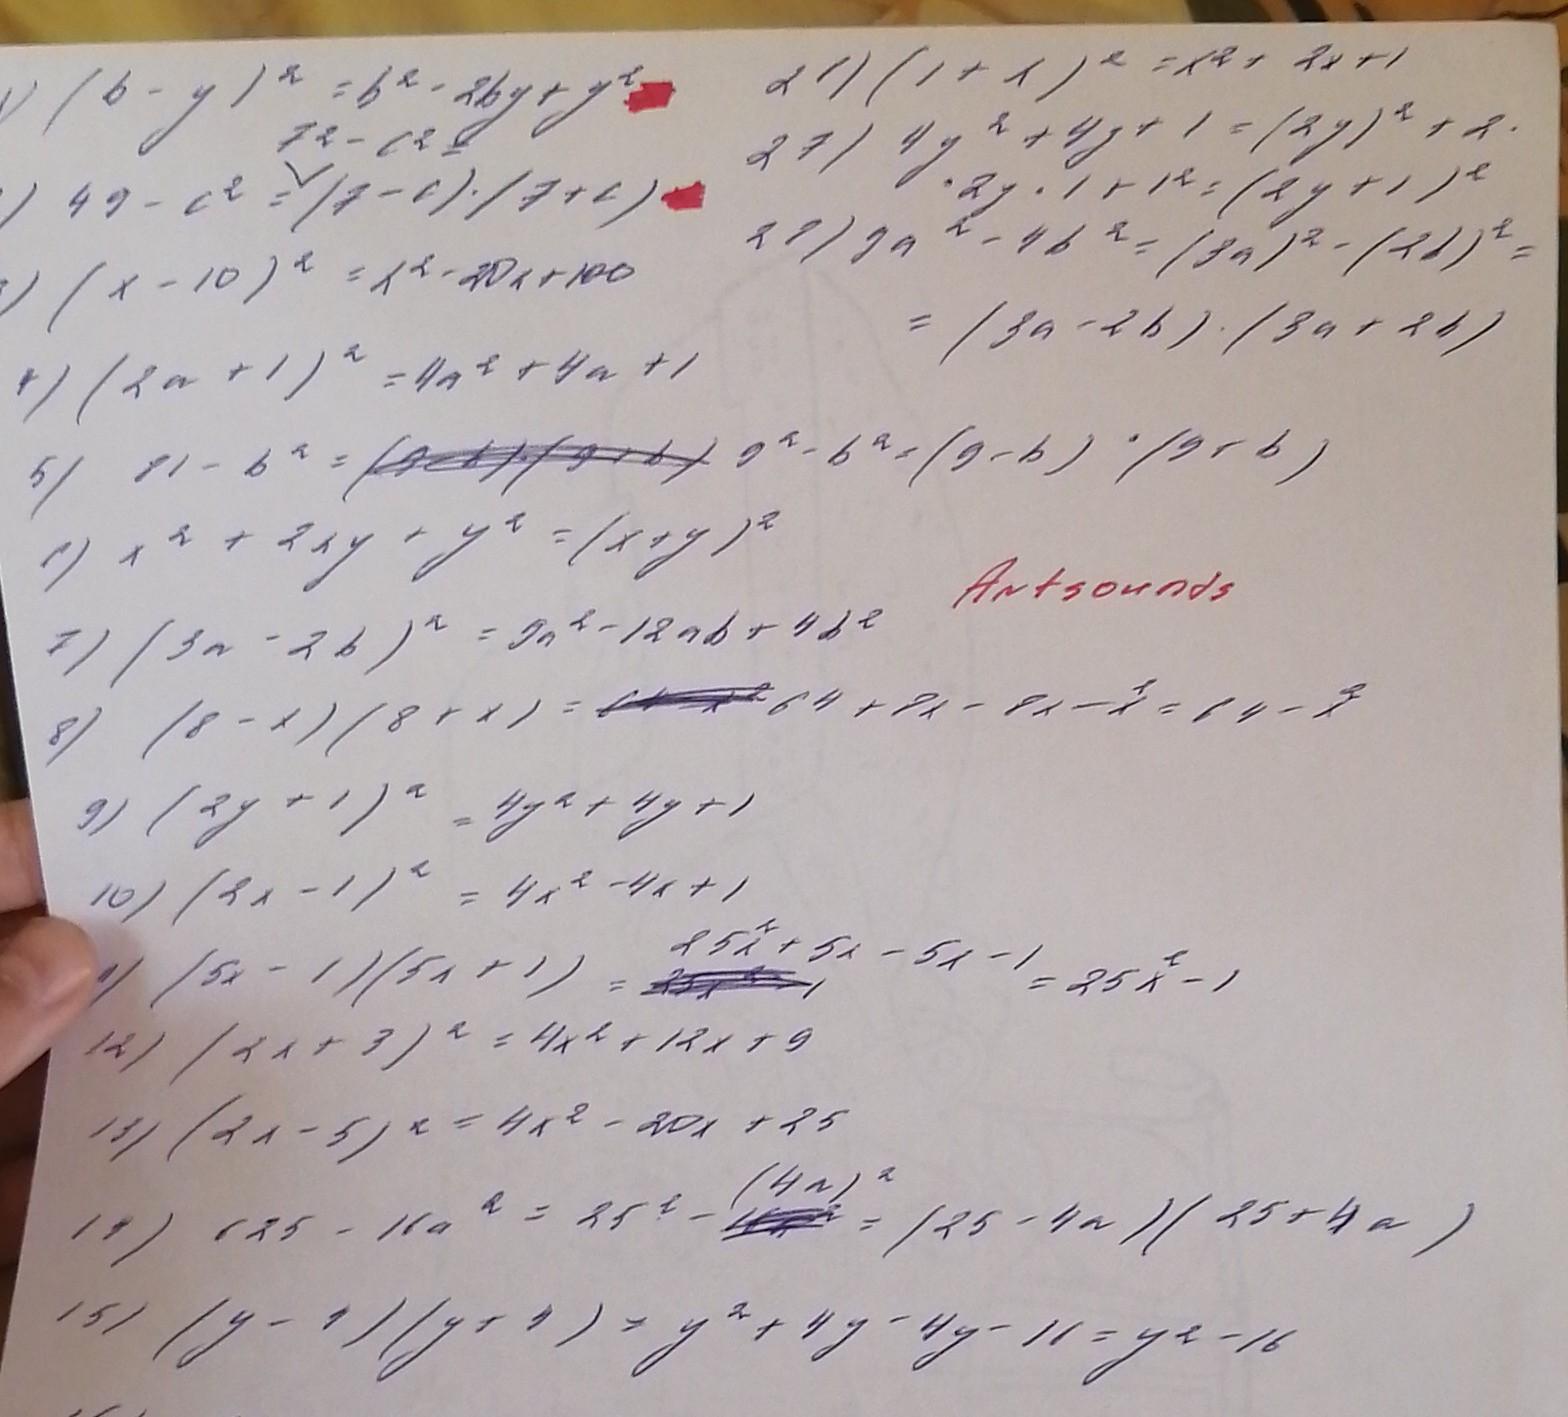 1) (b - y)² = b² - 2by + y²
7² - c² =
2) 49 - c² = (7 - c) · (7 + c)
3) (x - 10)² = x² - 20x + 100
4) (2a + 1)² = 4a² + 4a + 1
5) 81 - b² = 9² - b² = (9 - b) · (9 + b)
6) x² + 2xy + y² = (x + y)²
7) (3a - 2b)² = 9a² - 12ab + 4b²
8) (8 - x)(8 + x) = 64 + 8x - 8x - x² = 64 - x²
9) (2y + 1)² = 4y² + 4y + 1
10) (2x - 1)² = 4x² - 4x + 1
11) (5x - 1)(5x + 1) = 25x² + 5x - 5x - 1 = 25x² - 1
12) (2x + 3)² = 4x² + 12x + 9
13) (2x - 5)² = 4x² - 20x + 25
14) 625 - 16a² = 25² - (4a)² = (25 - 4a)(25 + 4a)
15) (y - 4)(y + 4) = y² + 4y - 4y - 16 = y² - 16
(1 + x)² = x² + 2x + 1
27) 4y² + 4y + 1 = (2y)² + 2 ·
· 2y · 1 + 1² = (2y + 1)²
9a² - 4b² = (3a)² - (2b)² =
= (3a - 2b) · (3a + 2b)
Artsounds